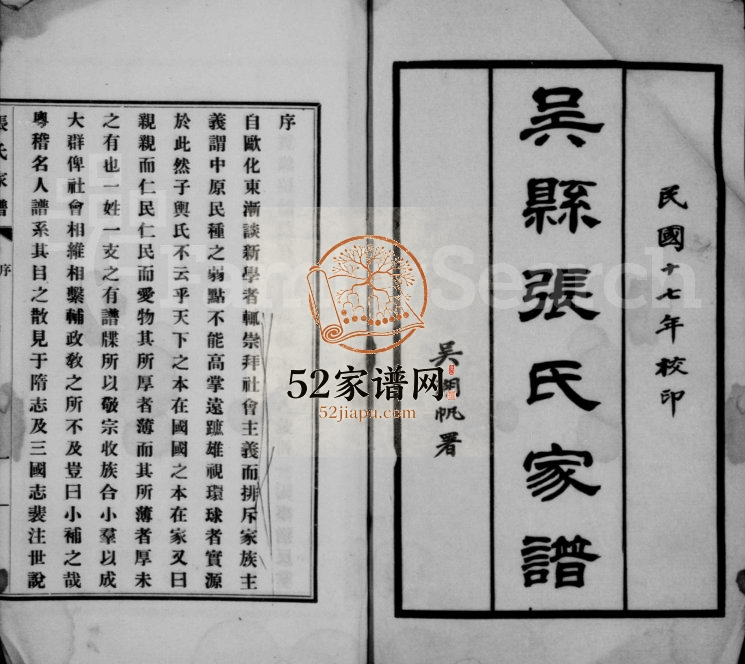 民國十七年校印
吴縣張氏家譜
吴湖帆署
序
自歐化東漸談新學者輒崇拜社會主義而排斥家族主
義謂中原民種之弱點不能高掌遠蹠雄視環球者實源
於此然子輿氏不云乎天下之本在國國之本在家又曰
親親而仁民仁民而愛物其所厚者薄而其所薄者厚未
之有也一姓一支之有譜牒所以敬宗收族合小羣以成
大群俾社會相維相繫輔政敎之所不及豈曰小補之哉
粵稽名人譜系其目之散見于隋志及三國志裴注世說
張氏家譜
序
52家谱网
52jiapu.com
FamilySearch